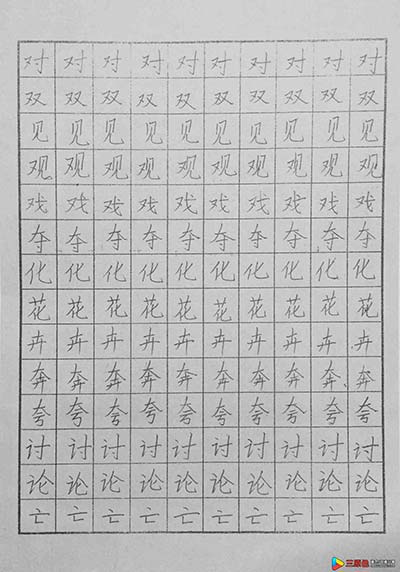 对 对 对 对 对 对 对 对 对 对
双 双 双 双 双 双 双 双 双 双
见 见 见 见 见 见 见 见 见 见
观 观 观 观 观 观 观 观 观 观
戏 戏 戏 戏 戏 戏 戏 戏 戏 戏
夺 夺 夺 夺 夺 夺 夺 夺 夺 夺
化 化 化 化 化 化 化 化 化 化
花 花 花 花 花 花 花 花 花 花
卉 卉 卉 卉 卉 卉 卉 卉 卉 卉
奔 奔 奔 奔 奔 奔 奔 奔 奔 奔
夸 夸 夸 夸 夸 夸 夸 夸 夸 夸
讨 讨 讨 讨 讨 讨 讨 讨 讨 讨
论 论 论 论 论 论 论 论 论 论
亡 亡 亡 亡 亡 亡 亡 亡 亡 亡